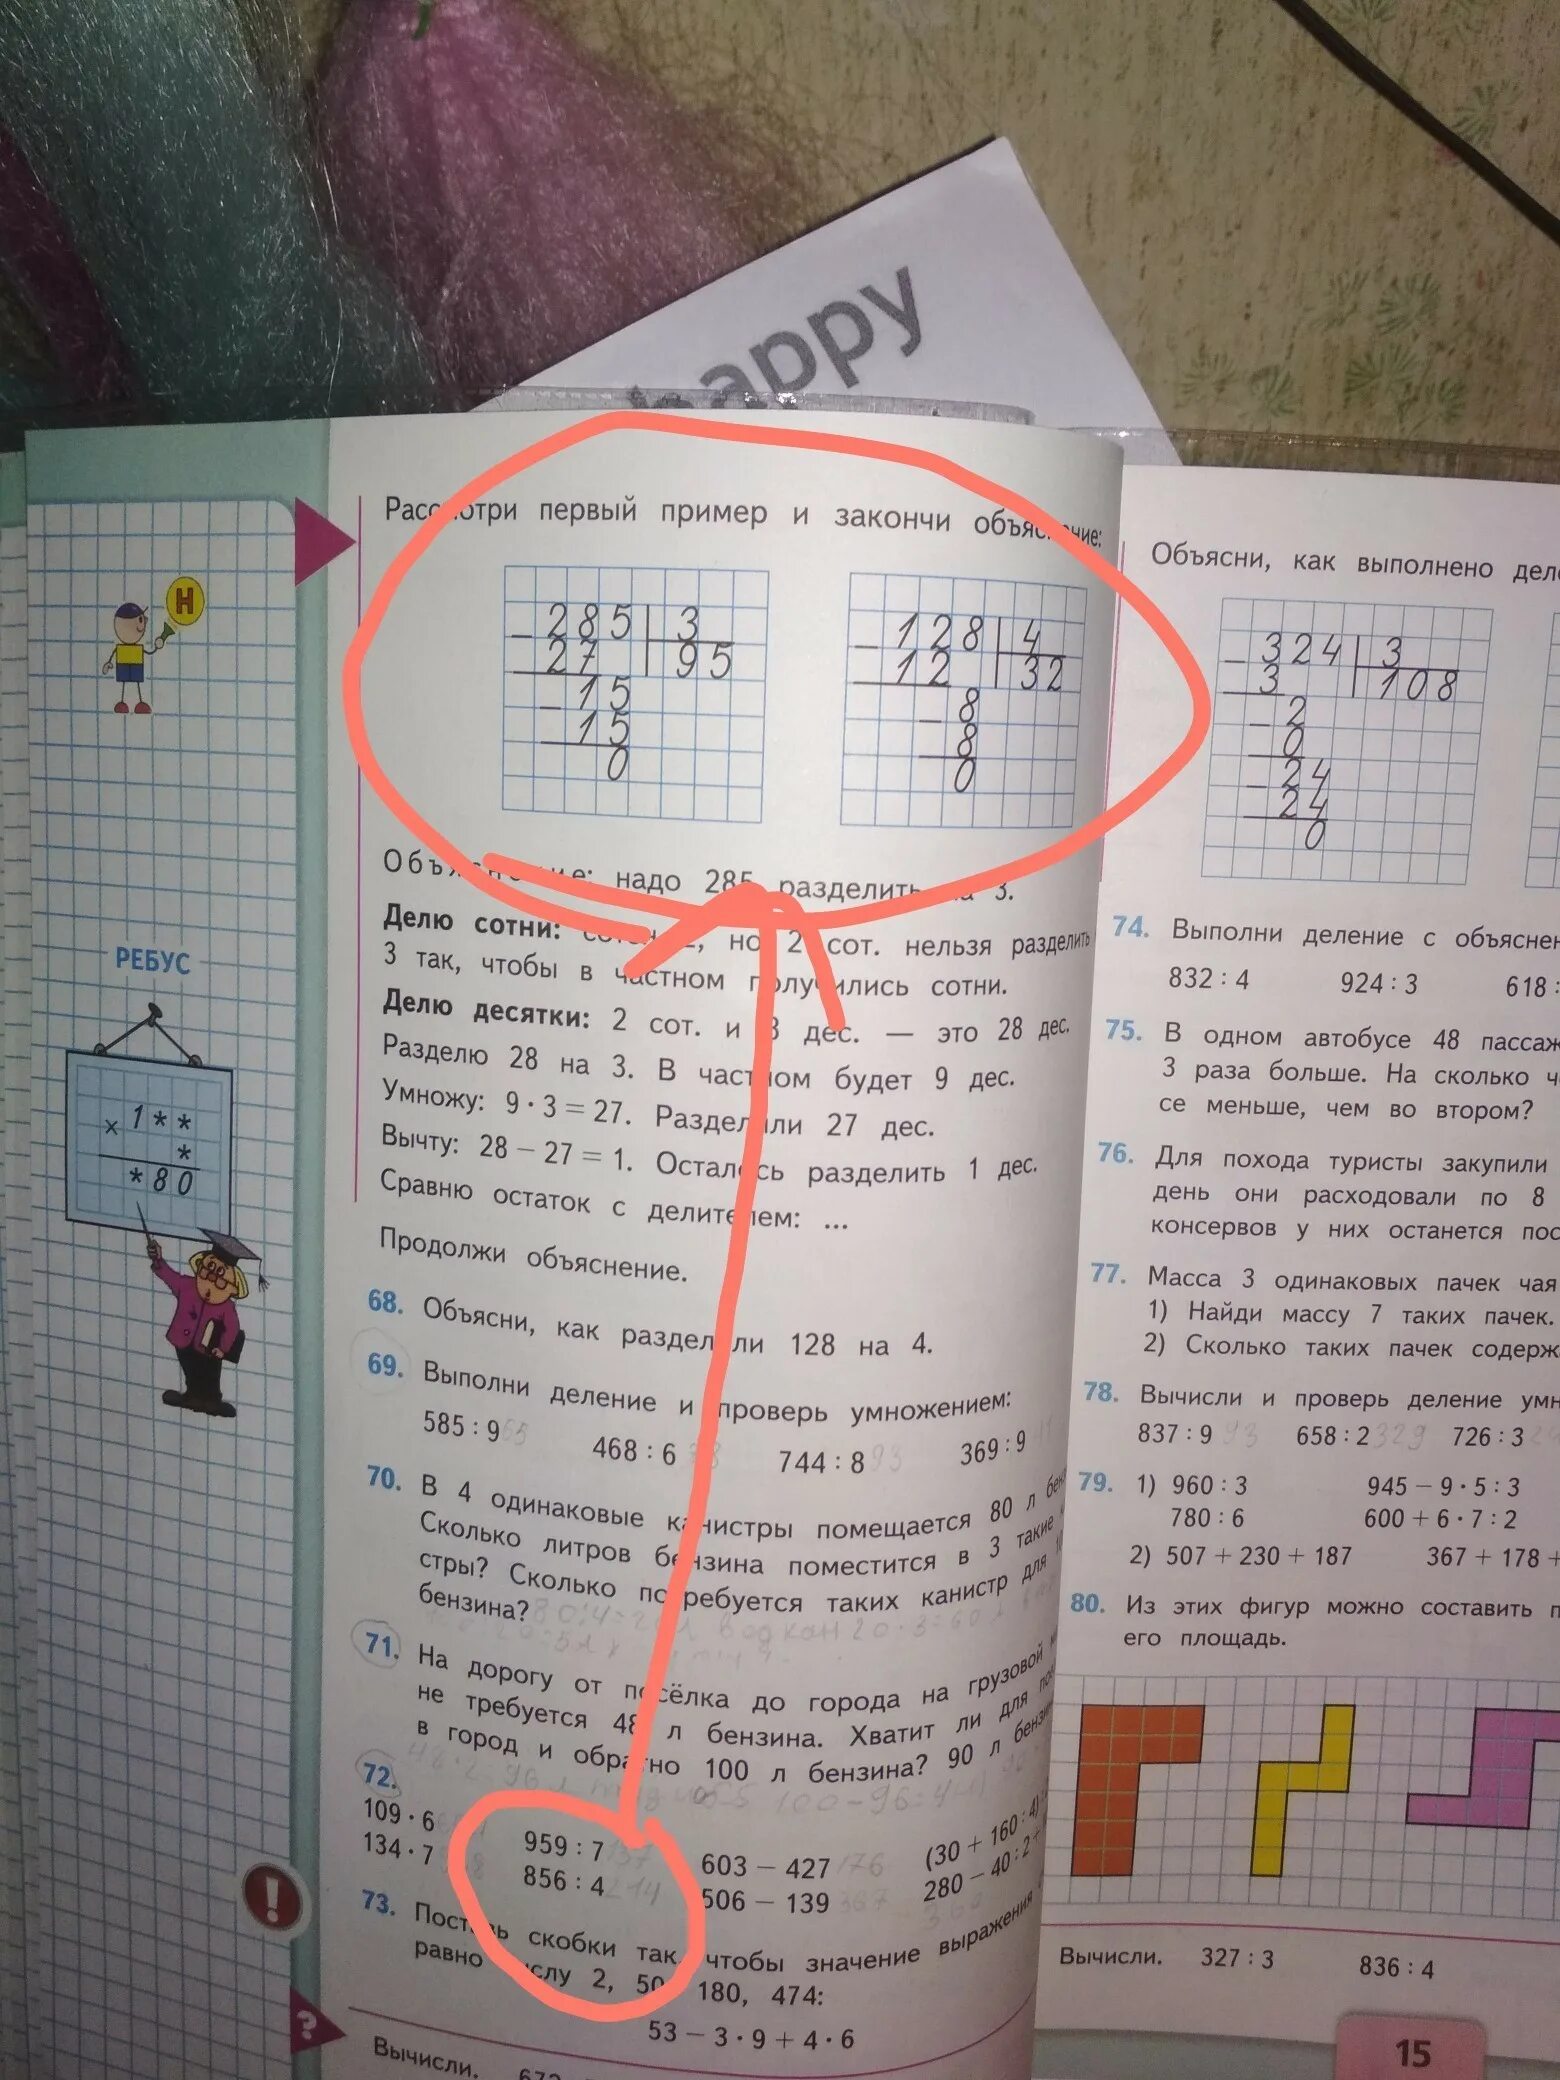 happy
Рассмотри первый пример и закончи объяснение:
285 | 3
27 | 95
15
15
0
128 | 4
12 | 32
8
8
0
Объяснение: надо 285 разделить на 3.
Делю сотни: сотен 2, но 2 сот. нельзя разделить
3 так, чтобы в частном получились сотни.
Делю десятки: 2 сот. и 8 дес. — это 28 дес.
Разделю 28 на 3. В частном будет 9 дес.
Умножу: 9 · 3 = 27. Разделили 27 дес.
Вычту: 28 − 27 = 1. Осталось разделить 1 дес.
Сравню остаток с делителем: ...
Продолжи объяснение.
68. Объясни, как разделили 128 на 4.
69. Выполни деление и проверь умножением:
585 : 9 468 : 6 744 : 8 93 369 : 9
70. В 4 одинаковые канистры помещается 80 л
Сколько литров бензина поместится в 3 такие
стры? Сколько потребуется таких канистр для
бензина?
71. На дорогу от посёлка до города на грузовой
не требуется 48 л бензина. Хватит ли для
в город и обратно 100 л бензина? 90 л
72.
109 · 6 959 : 7 137 603 − 427 176 (30 + 160 : 4)
134 · 7 856 : 4 214 506 − 139 367 280 − 40 : 2
73. Поставь скобки так, чтобы значение выражения
равно числу 2, 50, 180, 474:
53 − 3 · 9 + 4 · 6
Вычисли.
Н
РЕБУС
× 1**
*
*80
!
?
Объясни, как выполнено
324 | 3
3 | 108
2
0
24
24
0
74. Выполни деление с
832 : 4 924 : 3 618 :
75. В одном автобусе 48
3 раза больше. На сколько
се меньше, чем во втором?
76. Для похода туристы закупили
день они расходовали по 8
консервов у них останется
77. Масса 3 одинаковых пачек чая
1) Найди массу 7 таких пачек.
2) Сколько таких пачек
78. Вычисли и проверь деление
837 : 9 93 658 : 2 329 726 : 3
79. 1) 960 : 3 945 − 9 · 5 : 3
780 : 6 600 + 6 · 7 : 2
2) 507 + 230 + 187 367 + 178 +
80. Из этих фигур можно составить
его площадь.
Вычисли. 327 : 3 836 : 4
15